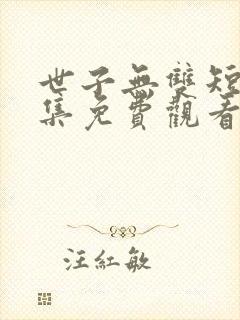 世子無雙短
集免費觀看
汪紅敏